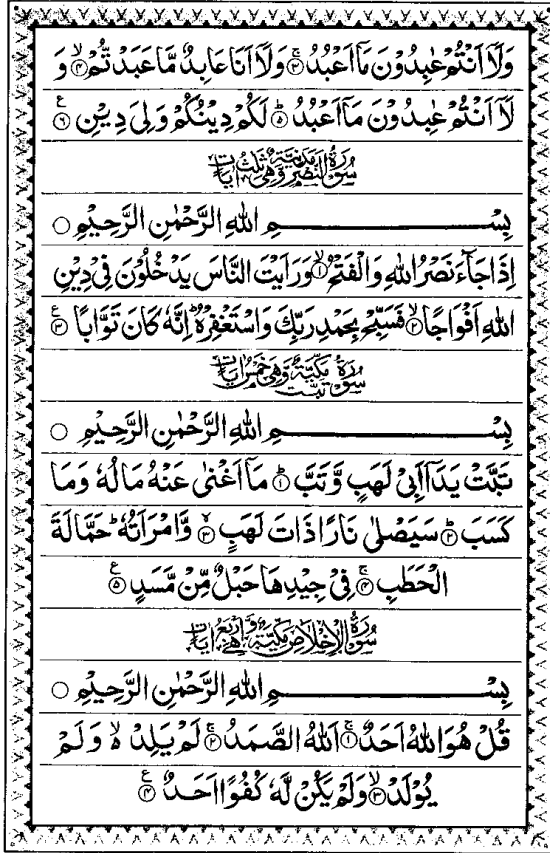 وَلَاۤ اَنْتُمْ عٰبِدُوْنَ مَاۤ اَعْبُدُ ۚ﴿۳﴾ وَلَاۤ اَنَا عَابِدٌ مَّا عَبَدْتُّمْ ۙ﴿۴﴾ وَ
لَاۤ اَنْتُمْ عٰبِدُوْنَ مَاۤ اَعْبُدُ ؕ﴿۵﴾ لَكُمْ دِيْنُكُمْ وَلِیَ دِيْنِ ﴿۶﴾ ع
سُوْرَةُ النَّصْرِ مَدَنِيَّةٌ وَّهِیَ ثَلٰثُ اٰيَاتٍ
بِسْمِ اللّٰهِ الرَّحْمٰنِ الرَّحِيْمِ ۝
اِذَا جَآءَ نَصْرُ اللّٰهِ وَالْفَتْحُ ۙ﴿۱﴾ وَرَاَيْتَ النَّاسَ يَدْخُلُوْنَ فِیْ دِيْنِ
اللّٰهِ اَفْوَاجًا ۙ﴿۲﴾ فَسَبِّحْ بِحَمْدِ رَبِّكَ وَاسْتَغْفِرْهُ ؕ اِنَّهٗ كَانَ تَوَّابًا ﴿۳﴾ ع
سُوْرَةُ تَبَّتْ مَكِّيَّةٌ وَّهِیَ خَمْسُ اٰيَاتٍ
بِسْمِ اللّٰهِ الرَّحْمٰنِ الرَّحِيْمِ ۝
تَبَّتْ يَدَاۤ اَبِیْ لَهَبٍ وَّتَبَّ ؕ﴿۱﴾ مَاۤ اَغْنٰی عَنْهُ مَالُهٗ وَمَا
كَسَبَ ؕ﴿۲﴾ سَيَصْلٰی نَارًا ذَاتَ لَهَبٍ ۚۖ﴿۳﴾ وَّامْرَاَتُهٗ ؕ حَمَّالَةَ
الْحَطَبِ ۚ﴿۴﴾ فِیْ جِيْدِهَا حَبْلٌ مِّنْ مَّسَدٍ ﴿۵﴾ ع
سُوْرَةُ الْاِخْلَاصِ مَكِّيَّةٌ وَّهِیَ اَرْبَعُ اٰيَاتٍ
بِسْمِ اللّٰهِ الرَّحْمٰنِ الرَّحِيْمِ ۝
قُلْ هُوَ اللّٰهُ اَحَدٌ ۚ﴿۱﴾ اَللّٰهُ الصَّمَدُ ۚ﴿۲﴾ لَمْ يَلِدْ ۙ۬ وَلَمْ
يُوْلَدْ ۙ﴿۳﴾ وَلَمْ يَكُنْ لَّهٗ كُفُوًا اَحَدٌ ﴿۴﴾ ع